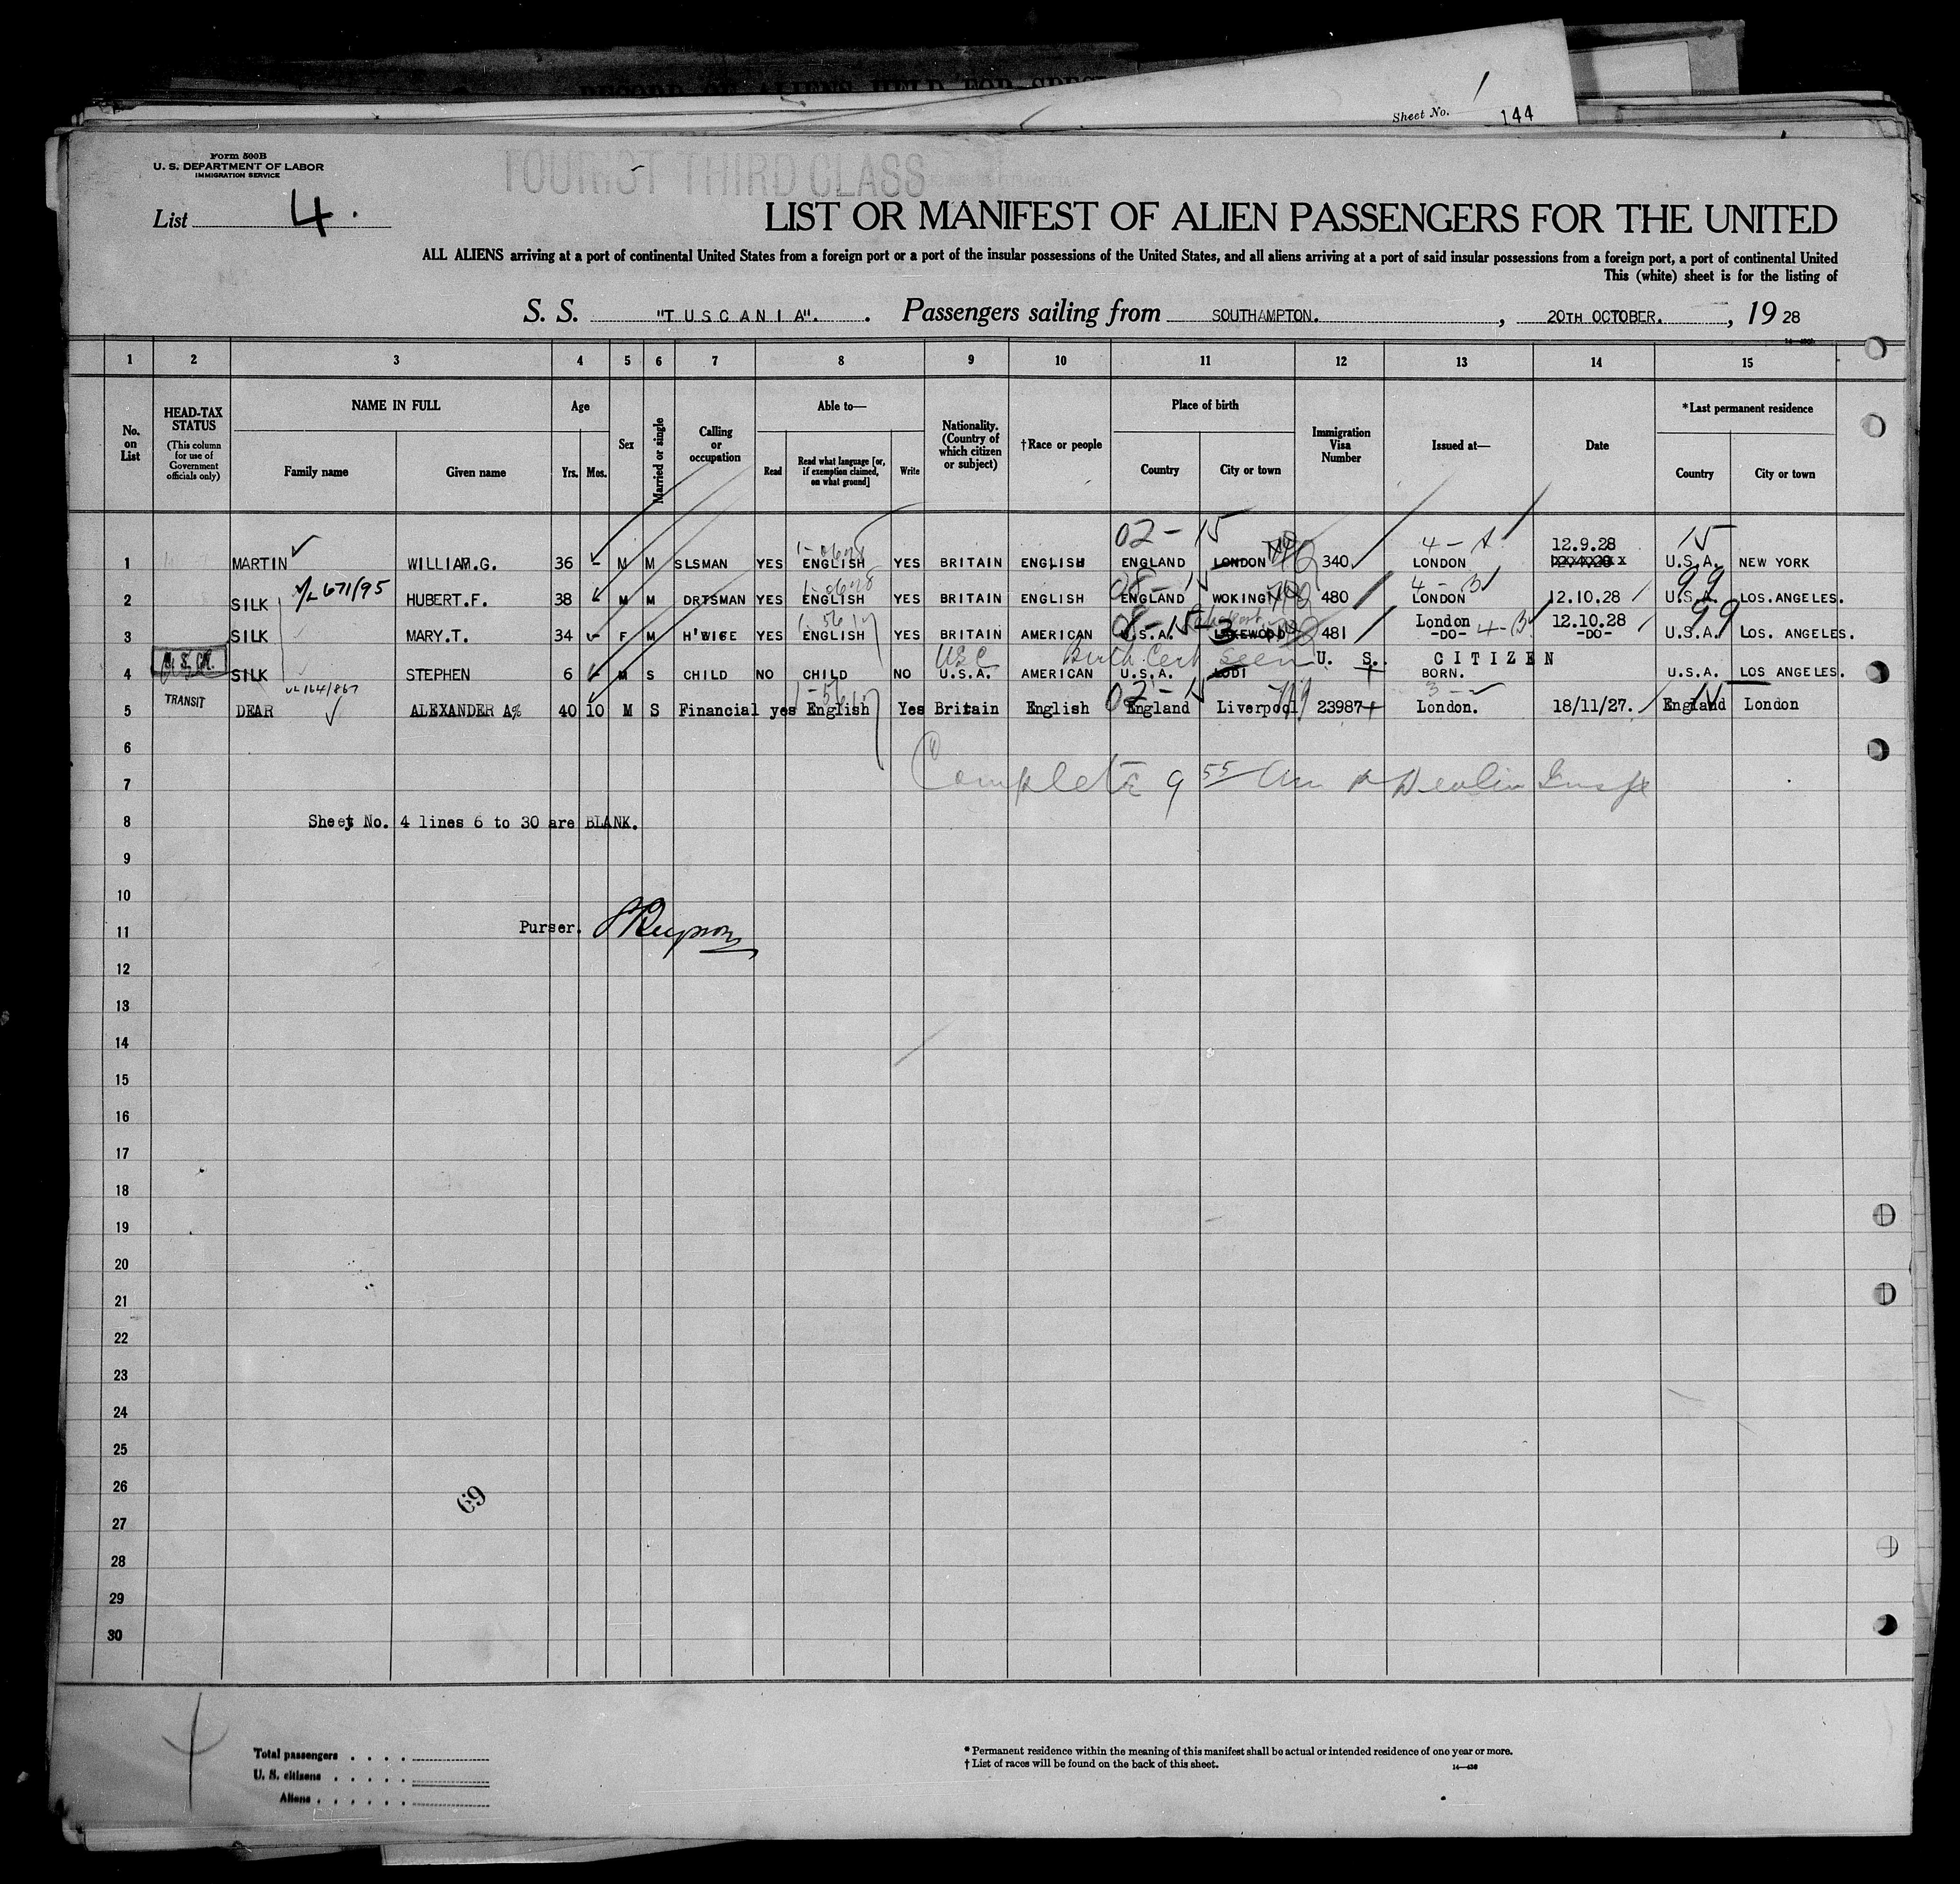 RECORD OF ALIENS HELD FOR SPEC
Sheet No. 144
Form 500B
U. S. DEPARTMENT OF LABOR
IMMIGRATION SERVICE
TOURIST THIRD CLASS
List 4.
LIST OR MANIFEST OF ALIEN PASSENGERS FOR THE UNITED
ALL ALIENS arriving at a port of continental United States from a foreign port or a port of the insular possessions of the United States, and all aliens arriving at a port of said insular possessions from a foreign port, a port of continental United
This (white) sheet is for the listing of
S. S. "TUSCANIA". Passengers sailing from SOUTHAMPTON. , 20TH OCTOBER. , 19 28
1 2 3 4 5 6 7 8 9 10 11 12 13 14 15
No. on List
HEAD-TAX STATUS
(This column for use of Government officials only)
NAME IN FULL
Family name
Given name
Age
Yrs. Mos.
Sex
Married or single
Calling or occupation
Able to—
Read
Read what language [or, if exemption claimed, on what ground]
Write
Nationality. (Country of which citizen or subject)
†Race or people
Place of birth
Country
City or town
Immigration Visa Number
Issued at—
Date
*Last permanent residence
Country
City or town
02-15 4-A 12.9.28 15
1 MARTIN WILLIAM.G. 36 - M M SLSMAN YES ENGLISH YES BRITAIN ENGLISH ENGLAND LONDON 340 LONDON U.S.A. NEW YORK
671/95 08-15 4-B 99
2 SILK HUBERT.F. 38 M M DRTSMAN YES ENGLISH YES BRITAIN ENGLISH ENGLAND WOKING 480 LONDON 12.10.28 U.S.A. LOS.ANGELES.
08-15-3 London 4-B 12.10.28 99
3 SILK MARY.T. 34 - F M H'WIFE YES ENGLISH YES BRITAIN AMERICAN U.S.A. LAKEWOOD 481 -DO- -DO- U.S.A. LOS. ANGELES.
USC Birth Cert seen U. S. CITIZEN
4 SILK STEPHEN 6 - M S CHILD NO CHILD NO U.S.A. AMERICAN U.S.A. LODI BORN. U.S.A. LOS ANGELES.
164/867 02-15
TRANSIT
5 DEAR ALEXANDER A% 40 10 M S Financial yes English Yes Britain English England Liverpool 23987 London. 18/11/27. England London
6
7 Complete 9 55 Am Devlin Insp
8 Sheet No. 4 lines 6 to 30 are BLANK.
9
10
11 Purser.
12
13
14
15
16
17
18
19
20
21
22
23
24
25
26
69
27
28
29
30
Total passengers . . . .
U. S. citizens . . . . .
Aliens . . . . . .
* Permanent residence within the meaning of this manifest shall be actual or intended residence of one year or more.
† List of races will be found on the back of this sheet.